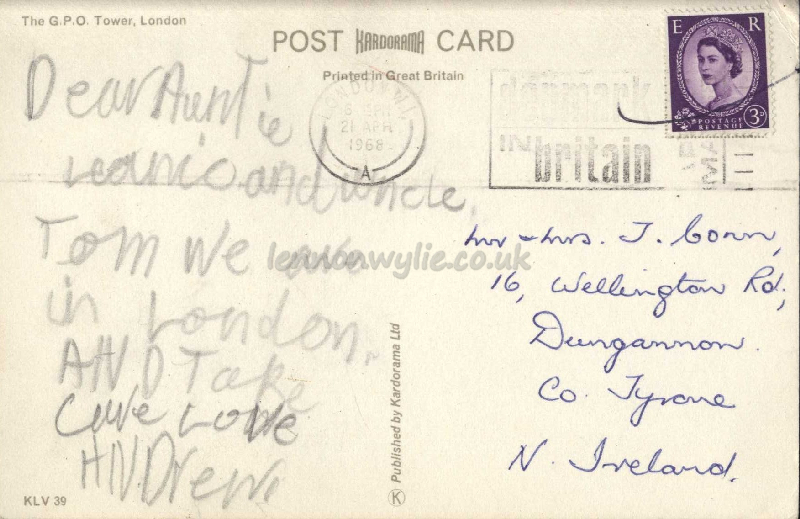 The G.P.O. Tower, London
POST KARDORAMA CARD
Printed in Great Britain
LONDON W.1
21 APR
1968
A
denmark
IN britain
E R
POSTAGE
REVENUE
3D
Dear Auntie
and uncle,
Tom We are
in London.
AND Take
Care Love
ANDrew
lennonwylie.co.uk
Mr & Mrs. T. Conn,
16, Wellington Rd;
Dungannon.
Co. Tyrone
N. Ireland.
Published by Kardorama Ltd
K
KLV 39